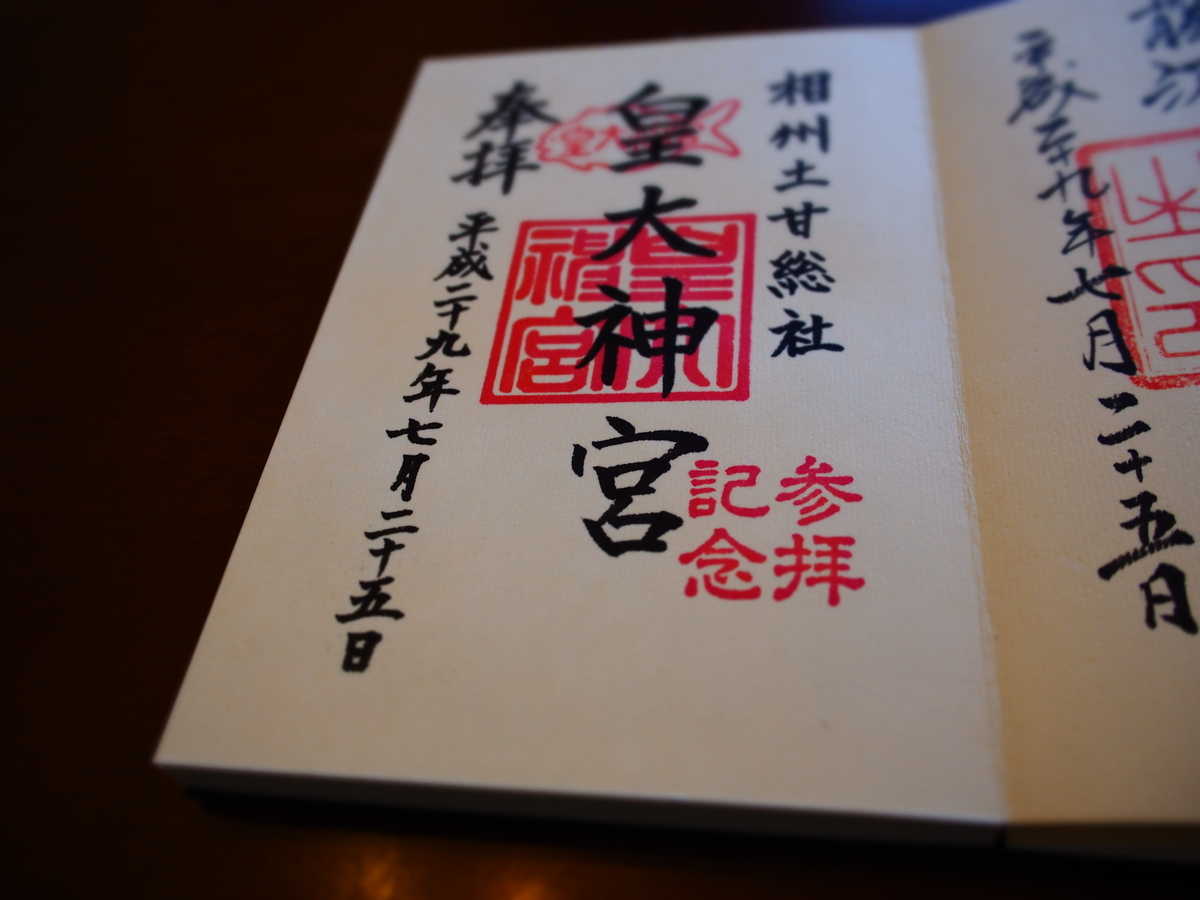 相州土甘総社
皇大神宮
参拝
記念
奉拝
平成二十九年七月二十五日
皇大
神宮
皇大
平成二十九年七月二十五日